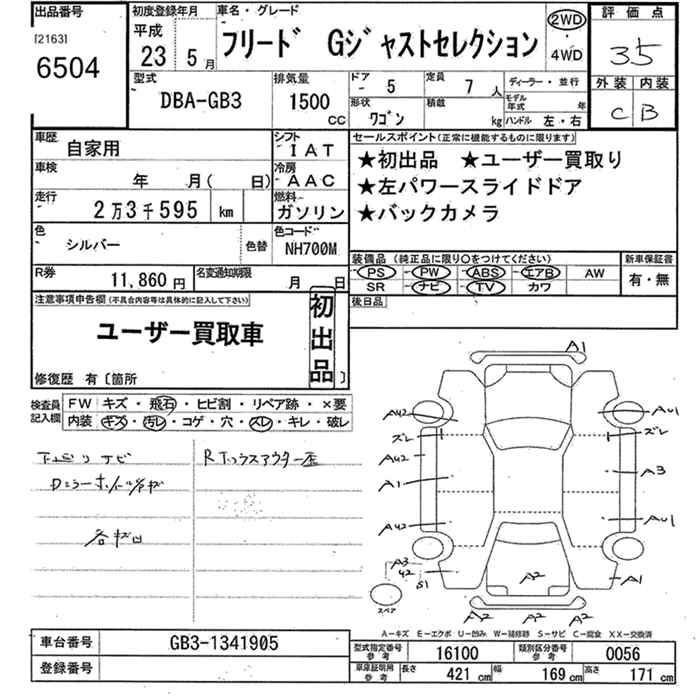 出品番号
[2163]
6504
初度登録年月
平成
23 5月
車名・グレード
フリード Gジャストセレクション
2WD
・
4WD
評価点
3.5
外装 内装
C B
型式
DBA-GB3
排気量
1500
CC
ドア
5
定員
7人
形状
ワゴン
積載
kg
ディーラー・並行
モデル年式 年
ハンドル 左・右
車歴
自家用
シフト
IAT
車検
年 月( 日)
冷房
AAC
走行
2万3千595 km
燃料
ガソリン
色
シルバー
色替
色コード
NH700M
R券
11,860円
名変通知期限
月 日
セールスポイント(正常に機能するものに限ります)
★初出品 ★ユーザー買取り
★左パワースライドドア
★バックカメラ
装備品(純正品に限り○をつけてください)
PS PW ABS エアB AW
SR ナビ TV カワ
新車保証書
有・無
後日品
注意事項申告欄(不具合内容等は具体的に記入して下さい)
ユーザー買取車
初出品
修復歴 有〔箇所 〕
検査員記入欄
FW キズ・飛石・ヒビ割・リペア跡・×要
内装 キズ・汚レ・コゲ・穴・スレ・キレ・破レ
A1
AU2
AU1
ズレ
ズレ
AU2
A3
A1
AU2
AU1
A3
42
S1
A1
A2
スペア
A2 A2 A2
A－キズ E－エクボ U－凹み W－補修跡 S－サビ C－腐食 XX－交換済
車台番号
GB3-1341905
登録番号
型式指定番号 参考
16100
類別区分番号 参考
0056
車庫証明用 参考
長さ 421 cm
幅 169 cm
高さ 171 cm